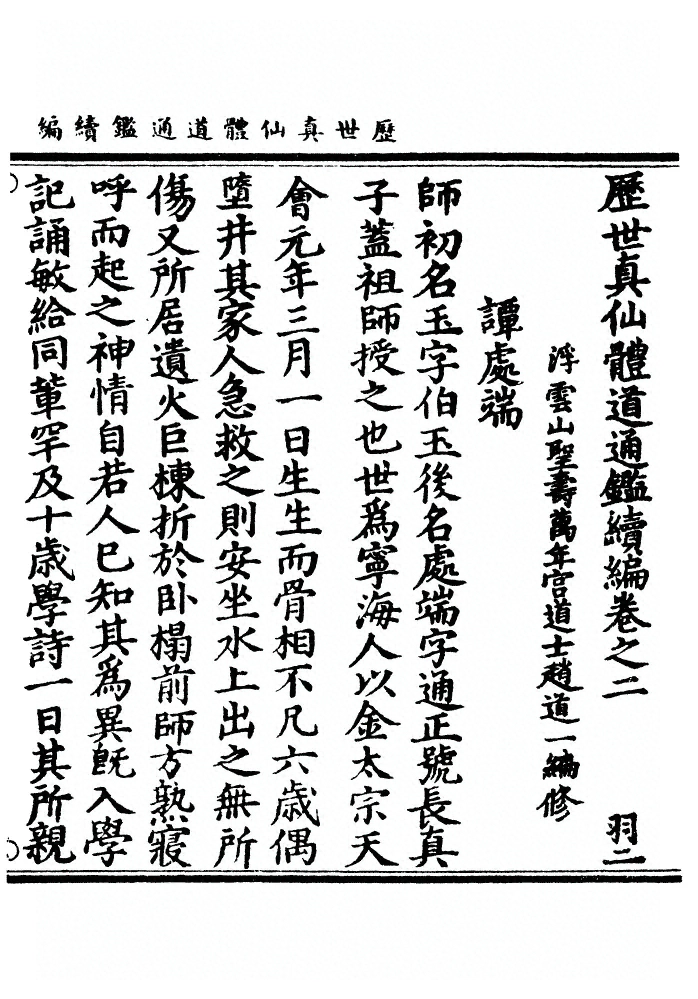 歷世真仙體道通鑑續編
歷世真仙體道通鑑續編卷之二 羽二
浮雲山聖壽萬年宮道士趙道一編修
譚處端
師初名玉字伯玉後名處端字通正號長真
子蓋祖師授之也世爲寧海人以金太宗天
會元年三月一日生生而骨相不凡六歲偶
墮井其家人急救之則安坐水上出之無所
傷又所居遺火巨棟折於卧榻前師方熟寢
呼而起之神情自若人已知其爲異旣入學
記誦敏給同輩罕及十歲學詩一日其所親